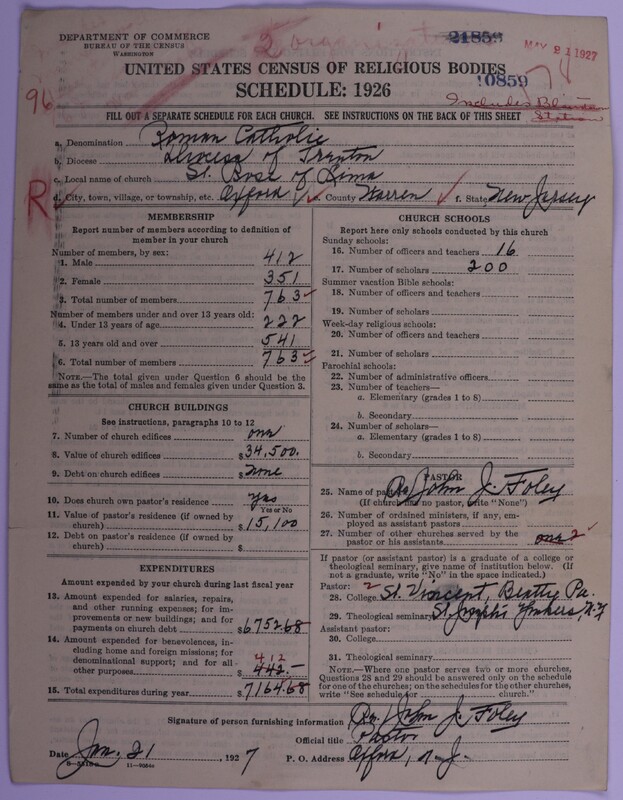 DEPARTMENT OF COMMERCE
BUREAU OF THE CENSUS
WASHINGTON
21853
MAY 21 1927
UNITED STATES CENSUS OF RELIGIOUS BODIES
10859
SCHEDULE: 1926
96
Includes
Station
FILL OUT A SEPARATE SCHEDULE FOR EACH CHURCH. SEE INSTRUCTIONS ON THE BACK OF THIS SHEET
a. Denomination Roman Catholic
b. Diocese Diocese of Trenton
c. Local name of church St. Rose of Lima
R
d. City, town, village, or township, etc. Oxford e. County Warren f. State New Jersey
MEMBERSHIP
Report number of members according to definition of member in your church
Number of members, by sex:
1. Male 412
2. Female 351
3. Total number of members 763
Number of members under and over 13 years old:
4. Under 13 years of age 222
5. 13 years old and over 541
6. Total number of members 763
NOTE.—The total given under Question 6 should be the
same as the total of males and females given under Question 3.
CHURCH BUILDINGS
See instructions, paragraphs 10 to 12
7. Number of church edifices one
8. Value of church edifices $34,500.
9. Debt on church edifices $none
10. Does church own pastor's residence yes
Yes or No
11. Value of pastor's residence (if owned by
church) $15,100
12. Debt on pastor's residence (if owned by
church) $
EXPENDITURES
Amount expended by your church during last fiscal year
13. Amount expended for salaries, repairs,
and other running expenses; for im-
provements or new buildings; and for
payments on church debt $6752.68
14. Amount expended for benevolences, in-
cluding home and foreign missions; for
denominational support; and for all
412
other purposes $442.—
15. Total expenditures during year $7164.68
CHURCH SCHOOLS
Report here only schools conducted by this church
Sunday schools:
16. Number of officers and teachers 16
17. Number of scholars 200
Summer vacation Bible schools:
18. Number of officers and teachers
19. Number of scholars
Week-day religious schools:
20. Number of officers and teachers
21. Number of scholars
Parochial schools:
22. Number of administrative officers
23. Number of teachers—
a. Elementary (grades 1 to 8)
b. Secondary
24. Number of scholars—
a. Elementary (grades 1 to 8)
b. Secondary
PASTOR
25. Name of pastor Rev. John J. Foley
(If church has no pastor, write "None")
26. Number of ordained ministers, if any, em-
ployed as assistant pastors
27. Number of other churches served by the
pastor or his assistants one 2
If pastor (or assistant pastor) is a graduate of a college or
theological seminary, give name of institution below. (If
not a graduate, write "No" in the space indicated.)
Pastor:
28. College St. Vincent, Beatty Pa.
29. Theological seminary St. Joseph's Yonkers, N.Y
Assistant pastor:
30. College
31. Theological seminary
NOTE.—Where one pastor serves two or more churches,
Questions 28 and 29 should be answered only on the schedule
for one of the churches; on the schedules for the other churches,
write "See schedule for church."
Signature of person furnishing information Rev. John J. Foley
Official title Pastor
Date Jan. 21, 1927 P. O. Address Oxford, N. J.